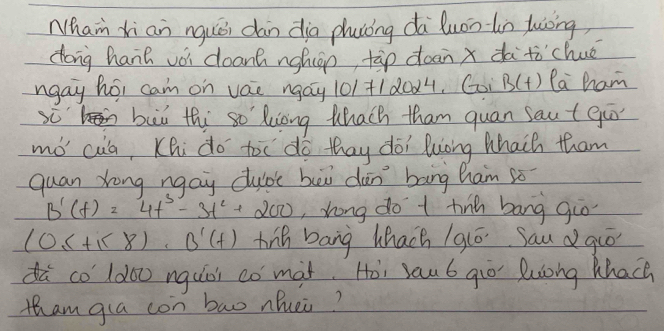 Nhằm tri ân người dân địa phương đã luôn tin tưởng,
đồng hành với doanh nghiệp, tập đoàn X đã tổ chức
ngày hội cảm ơn vào ngày 10/7/2024. Gọi B(t) là hàm
số biểu thị số lượng khách tham quan sau t giờ
mở cửa. Khi đó tốc độ thay đổi lượng khách tham
quan trong ngày được biểu diễn bằng hàm số
B'(t) = 4t³ - 3t² + 200, trong đó t tính bằng giờ
(0 ≤ t ≤ 8). B'(t) tính bằng khách/giờ. Sau 2 giờ
đã có 1200 người có mặt. Hỏi sau 6 giờ lượng khách
tham gia còn bao nhiêu?